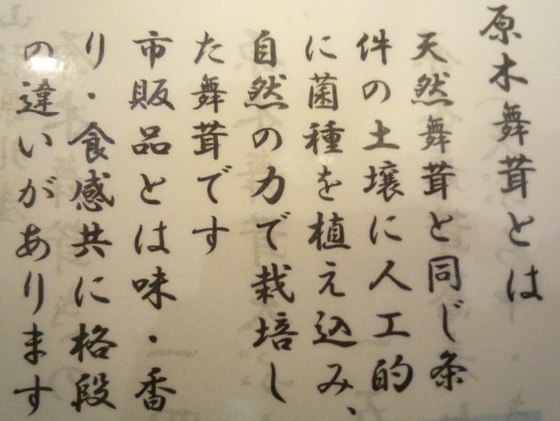 原木舞茸とは
天然舞茸と同じ条
件の土壌に人工的
に菌種を植え込み、
自然の力で栽培し
た舞茸です
市販品とは味・香
り・食感共に格段
の違いがあります